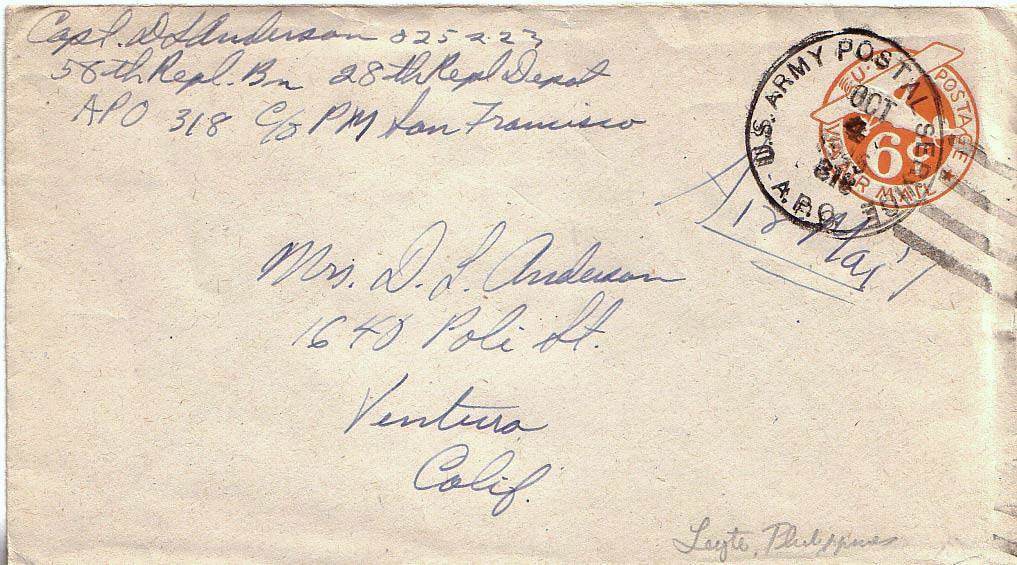 Capt. D L Anderson 825223
58th Repl. Bn 28th Repl Depot
APO 318 C/o PM San Francisco
U.S. ARMY POSTAL SERVICE
OCT
318
A.P.O.
U.S. POSTAGE
6¢
VIA AIR MAIL
Air Mail
Mrs. D. L. Anderson
1640 Poli St.
Ventura
Calif.
Leyte, Philippines